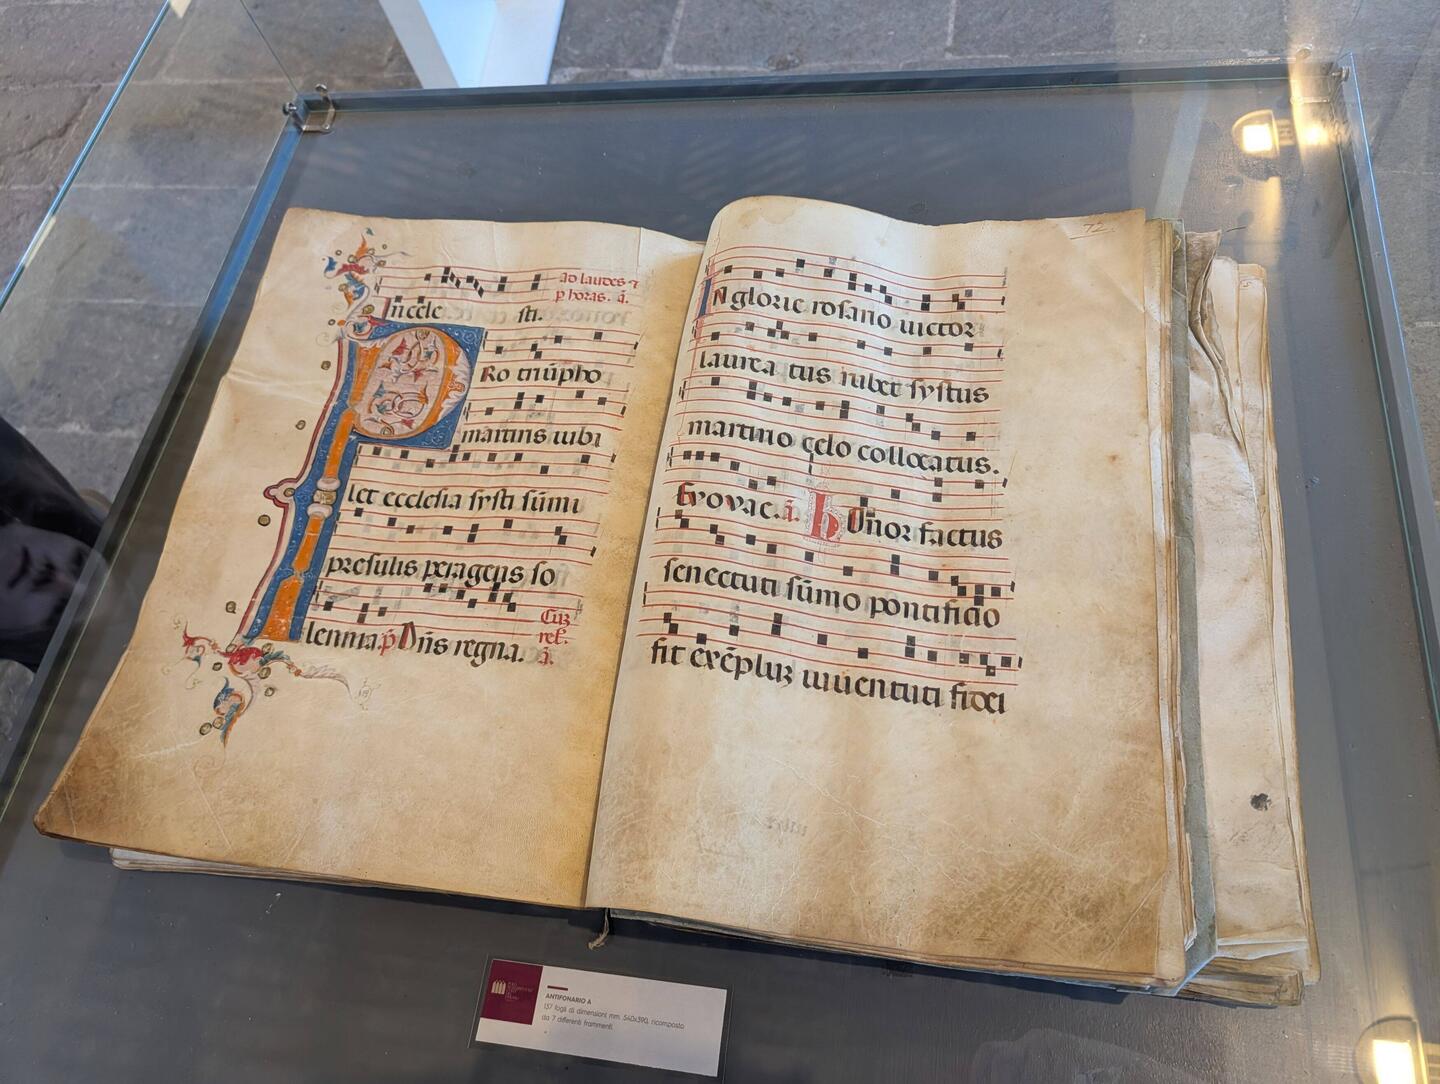 ad laudes ⁊
p horas. a.
In cele sti.
PRo triūpho
martiris iubi
let ecclesia systi sūmi
presulis peragens so
lennia. p̄ Dn̄s regna.
a.
72
IN glorie rosario uictor
laurea tus rubet systus
martirio celo collocatus.
Evovae. a. hOnor factus
senectuti sūmo pontificio
fit exēplum iuuentuti fidei
ANTIFONARIO A
137 fogli di dimensioni mm. 540x390, ricomposto
da 7 differenti frammenti.